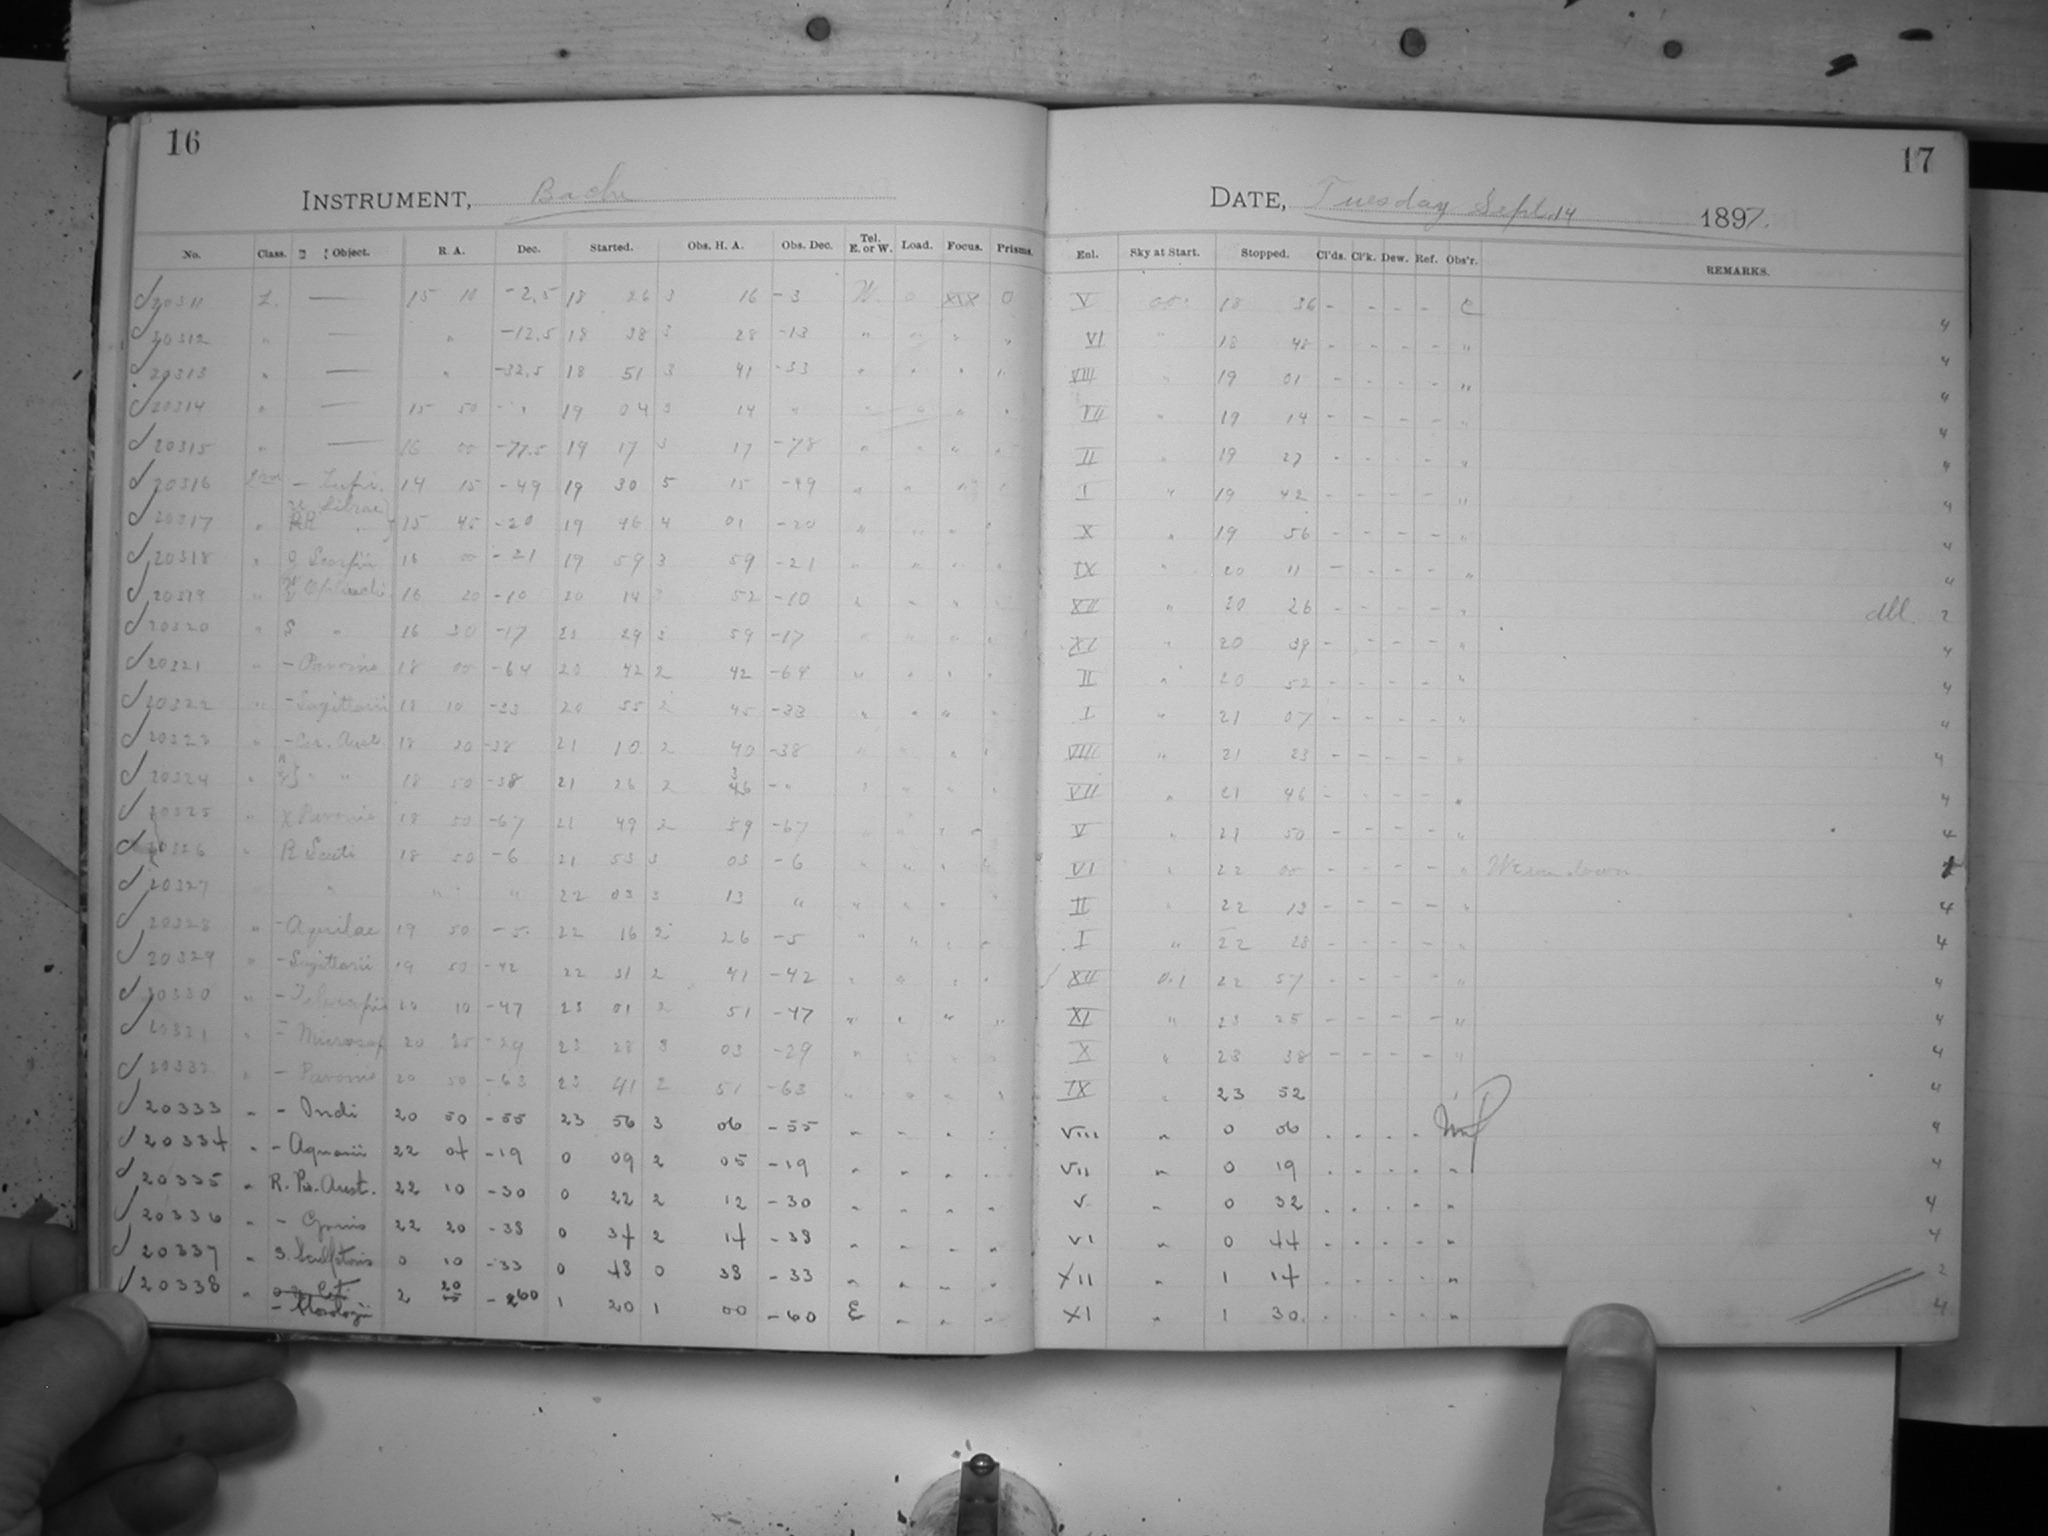 16
INSTRUMENT, Bache
No. Class. Object. R. A. Dec. Started. Obs. H. A. Obs. Dec. Tel. E. or W. Load. Focus. Prisms.
20311 L. — 15 10 -2.5 18 26 3 16 -3 W. 0 XIX 0
20312 " — " -12.5 18 38 3 28 -13 " " " "
20313 " — " -32.5 18 51 3 41 -33 " " " "
20314 " — 15 50 " 19 04 3 14 " " " " "
20315 " — 16 00 -77.5 19 17 3 17 -78 " " " "
20316 - Lupi. 14 15 -49 19 30 5 15 -49 " " " "
20317 " Librae RR " 15 45 -20 19 46 4 01 -20 " " " "
20318 " Scorpii 16 00 -21 19 59 3 59 -21 " " " "
20319 " Ophiuchi 16 20 -10 20 14 3 52 -10 " " " "
20320 " S " 16 30 -17 29 59 -17 " " " "
20321 " - Pavonis 18 00 -64 20 42 2 42 -64 " " " "
20322 " - Sagittarii 18 10 -33 20 55 2 45 -33 " " " "
20323 " - Cor. Aust. 18 30 -38 21 10 2 40 -38 " " " "
20324 " " " 18 50 -38 21 26 2 36 - " " " " "
20325 " χ Pavonis 18 50 -67 21 49 2 59 -67 " " " "
20326 " R Scuti 18 50 -6 21 53 3 03 -6 " " " "
20327 " " " " 22 03 3 13 " " " " "
20328 " - Aquilae 19 50 -5 22 16 2 26 -5 " " " "
20329 " - Sagittarii 19 50 -42 22 31 2 41 -42 " " " "
20330 " - Telescopii 20 10 -47 23 01 2 51 -47 " " " "
20331 " - Microscop 20 25 -29 23 28 3 03 -29 " " " "
20332 " - Pavonis 20 50 -63 23 41 2 51 -63 " " " "
20333 " - Indi 20 50 -55 23 56 3 06 -55 " " " "
20334 " - Aquarii 22 04 -19 0 09 2 05 -19 " " " "
20335 " R. Pis. Aust. 22 10 -30 0 22 2 12 -30 " " " "
20336 " - Gruis 22 20 -38 0 34 2 14 -38 " " " "
20337 " S. Sculptoris 0 10 -33 0 48 0 38 -33 " " " "
20338 " o Ceti - Horologii 2 20 -60 1 20 1 00 -60 E " " "
17
DATE, Tuesday Sept. 14 1897.
Enl. Sky at Start. Stopped. Cl'ds. Cl'k. Dew. Ref. Obs'r. REMARKS.
V 18 36 - - - - C 4
VI " 18 48 - - - - " 4
VIII " 19 01 - - - - " 4
VII " 19 14 - - - - " 4
II " 19 27 - - - - " 4
I " 19 42 - - - - " 4
X " 19 56 - - - - " 4
IX " 20 11 - - - - " 4
XII " 20 26 - - - - " dbl. 2
XI " 20 39 - - - - " 4
II " 20 52 - - - - " 4
I " 21 07 - - - - " 4
VIII " 21 23 - - - - " 4
VII " 21 46 - - - - " 4
V " 21 50 - - - - " 4
VI " 22 00 - - - - "
II " 22 13 - - - - " 4
I " 22 28 - - - - " 4
XII 0.1 22 57 - - - - " 4
XI " 23 25 - - - - " 4
X " 23 38 - - - - " 4
IX " 23 52 " 4
VIII " 0 06 - - - - 4
VII " 0 19 - - - - " 4
V " 0 32 - - - - " 4
VI " 0 44 - - - - " 4
XII " 1 14 - - - - " 2
XI " 1 30 - - - - " 4